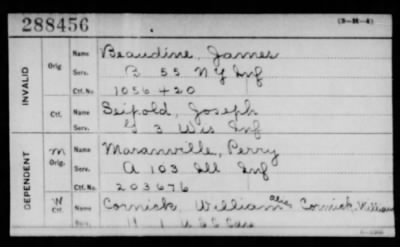 288456
INVALID
Orig
Name Beaudine, James
Serv. B 55 NY Inf
Ctf. No. 1056420
Ctf.
Name Seipold, Joseph
Serv. G 3 Wis Inf
DEPENDENT
M
Orig.
Name Maranville, Perry
Serv. A 103 Ill Inf
Ctf. No. 203676
W
Ctf.
Name Cornick William alias Cornick, William
Serv. H 1 U S C Cav